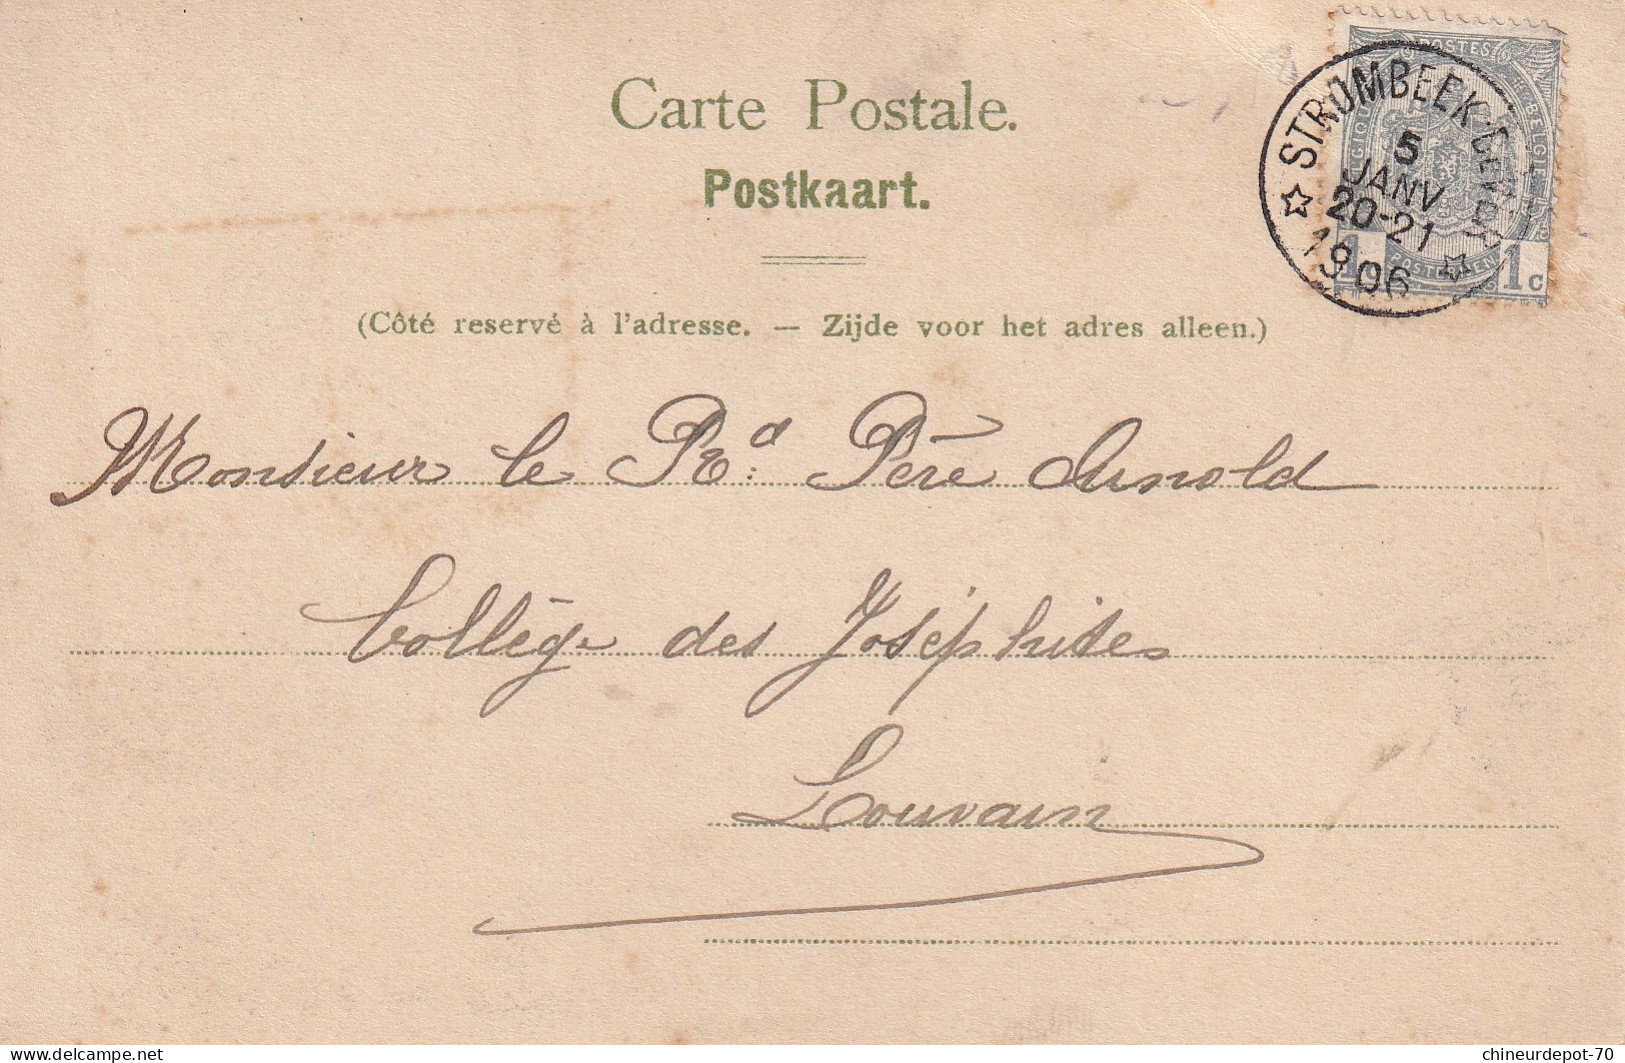 Carte Postale.
Postkaart.
(Côté reservé à l'adresse. — Zijde voor het adres alleen.)
POSTES
STROMBEEK-BEVER
5
JANV
20-21
1906
1 1c
Monsieur le Rd: Père Arnold
Collège des Joséphites
Louvain
delcampe.net
chineurdepot-70